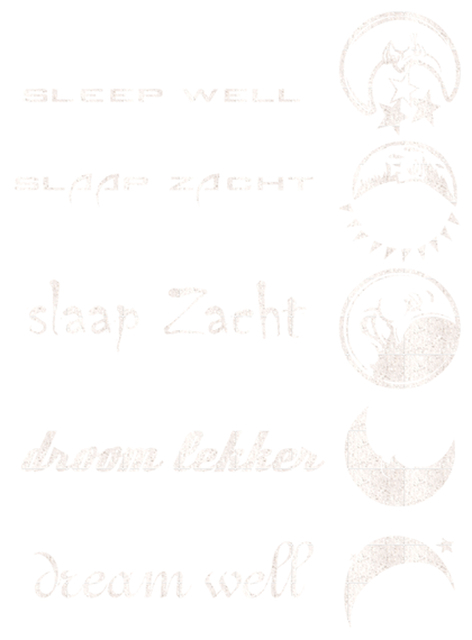 SLEEP WELL
SLAAP ZACHT
slaap Zacht
droom lekker
dream well